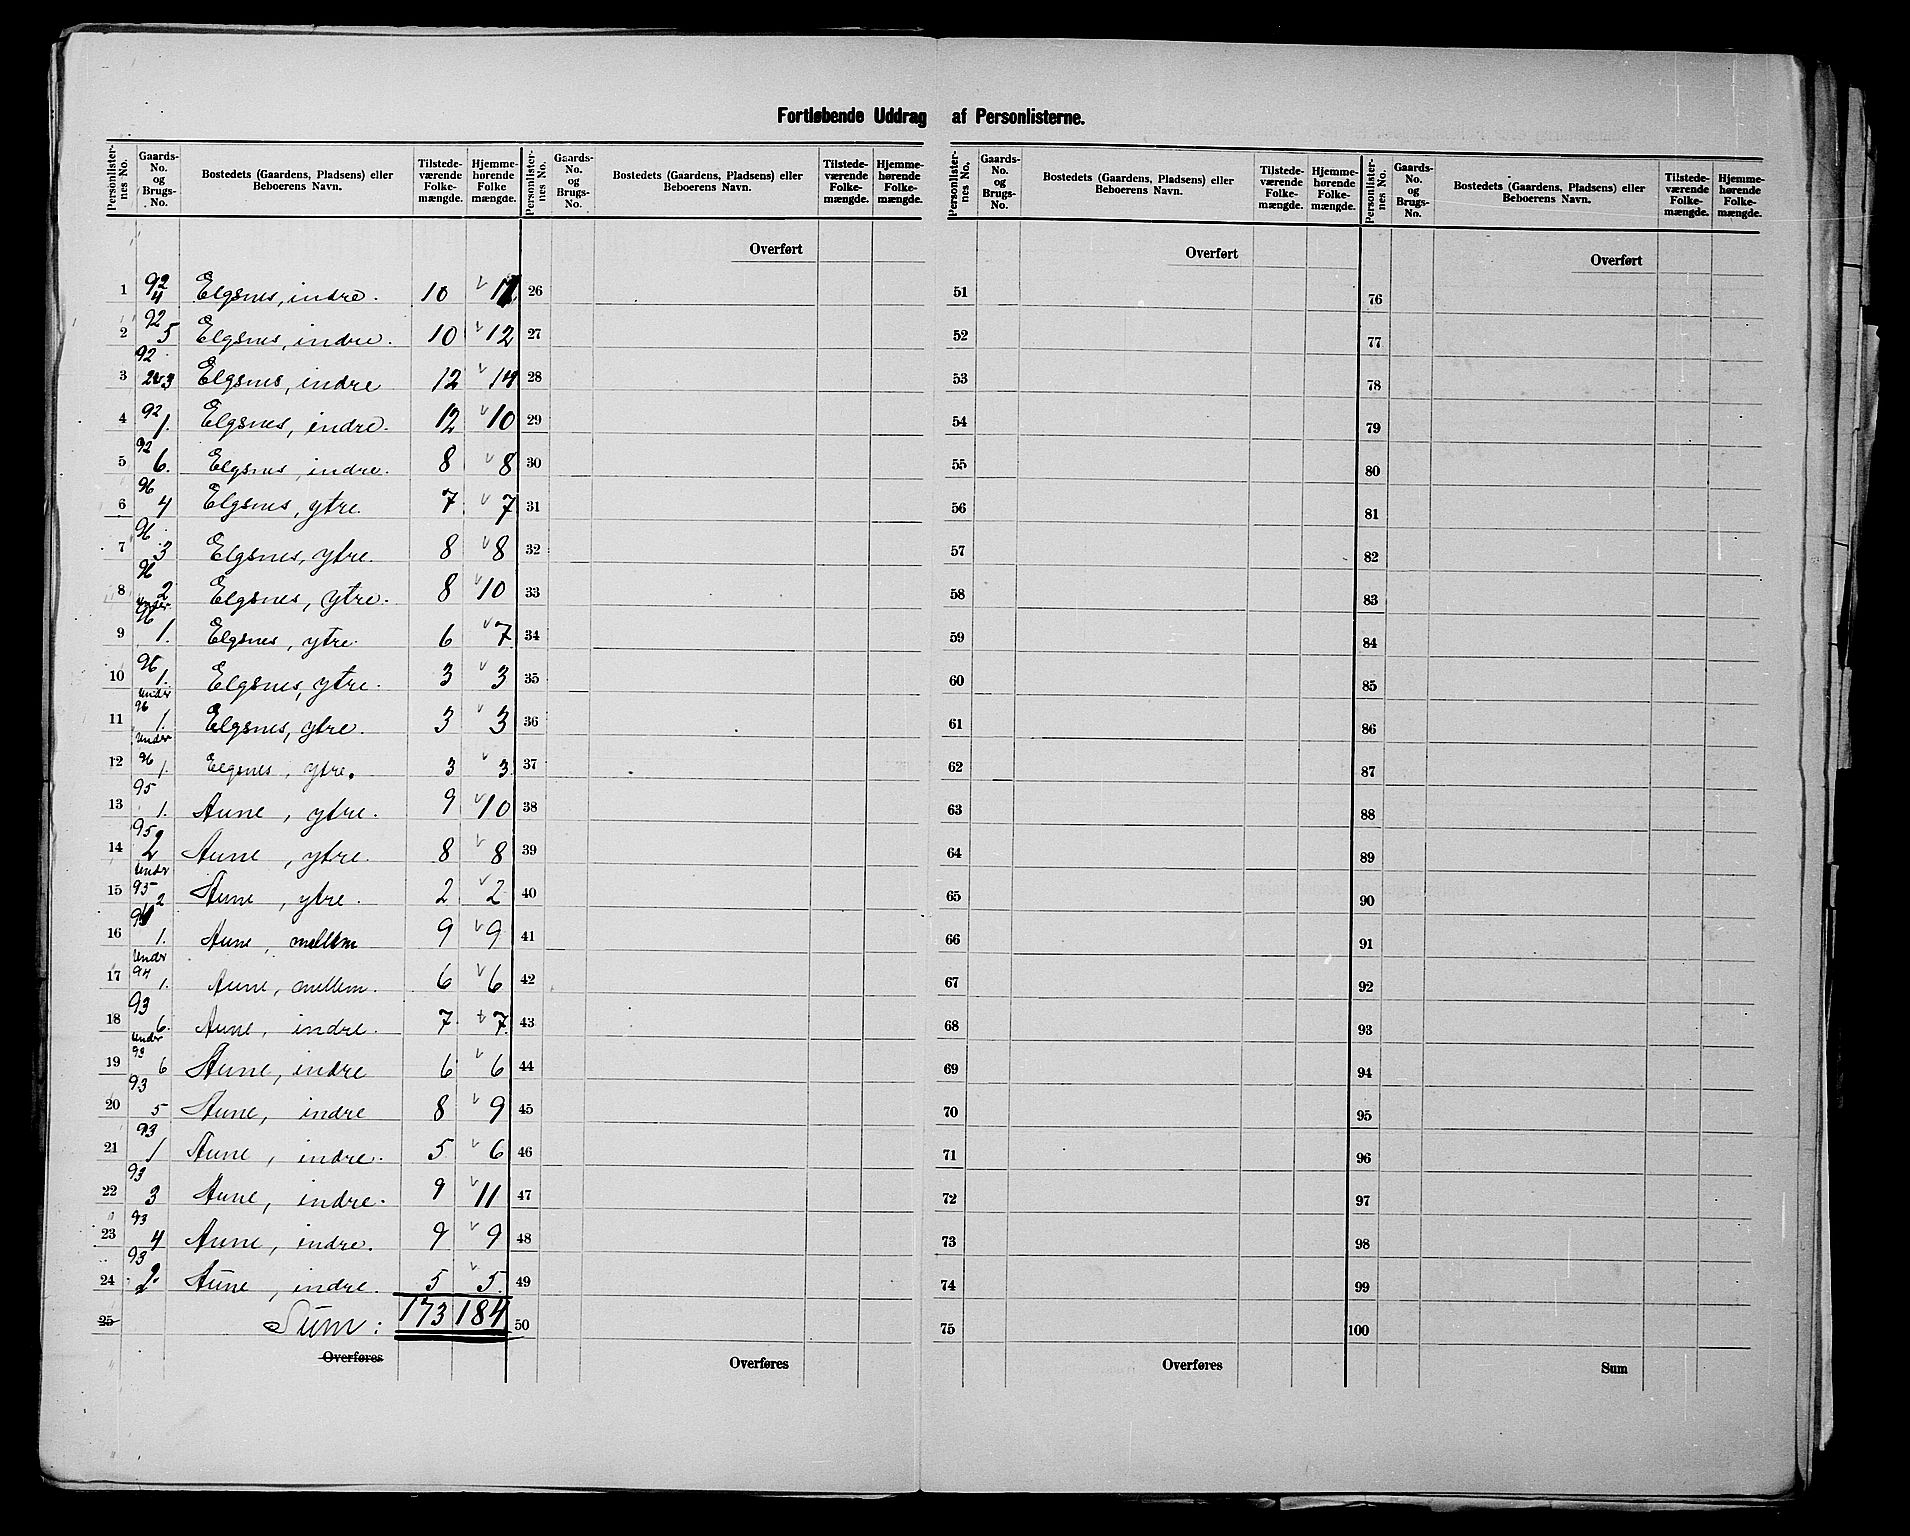 Fortløbende Uddrag af Personlisterne.
Personlisternes No. Gaards-No. og Brugs-No. Bostedets (Gaardens, Pladsens) eller Beboerens Navn. Tilstedeværende Folkemængde. Hjemmehørende Folkemængde. Personlisternes No. Gaards-No. og Brugs-No. Bostedets (Gaardens, Pladsens) eller Beboerens Navn. Tilstedeværende Folkemængde. Hjemmehørende Folkemængde. Personlisternes No. Gaards-No. og Brugs-No. Bostedets (Gaardens, Pladsens) eller Beboerens Navn. Tilstedeværende Folkemængde. Hjemmehørende Folkemængde. Personlisternes No. Gaards-No. og Brugs-No. Bostedets (Gaardens, Pladsens) eller Beboerens Navn. Tilstedeværende Folkemængde. Hjemmehørende Folkemængde.
Overført Overført Overført
1 92 4 Elgsnes, indre. 10 11 26 51 76
2 92 5 Elgsnes, indre. 10 12 27 52 77
3 92 2&3 Elgsnes, indre 12 14 28 53 78
4 92 1. Elgsnes, indre. 12 10 29 54 79
5 92 6. Elgsnes, indre. 8 8 30 55 80
6 96 4 Elgsnes, ytre 7 7 31 56 81
7 96 3 Elgsnes, ytre. 8 8 32 57 82
8 96 2 Elgsnes, ytre. 8 10 33 58 83
9 under 96 1. Elgsnes, ytre. 6 7 34 59 84
10 96 1. Elgsnes, ytre. 3 3 35 60 85
11 under 96 1. Elgsnes, ytre. 3 3 36 61 86
12 under 96 1. Elgsnes, ytre. 3 3 37 62 87
13 95 1. Aune, ytre. 9 10 38 63 88
14 95 2 Aune, ytre. 8 8 39 64 89
15 under 95 2 Aune, ytre. 2 2 40 65 90
16 94 1. Aune, mellem 9 9 41 66 91
17 under 94 1. Aune, mellem. 6 6 42 67 92
18 93 6. Aune, indre. 7 7 43 68 93
19 under 93 6 Aune, indre 6 6 44 69 94
20 93 5 Aune, indre 8 9 45 70 95
21 93 1 Aune, indre. 5 6 46 71 96
22 93 3 Aune, indre. 9 11 47 72 97
23 93 4 Aune, indre. 9 9 48 73 98
24 93 2. Aune, indre. 5 5 49 74 99
25 Sum: 173 184 50 75 100
Overføres Overføres Overføres Sum